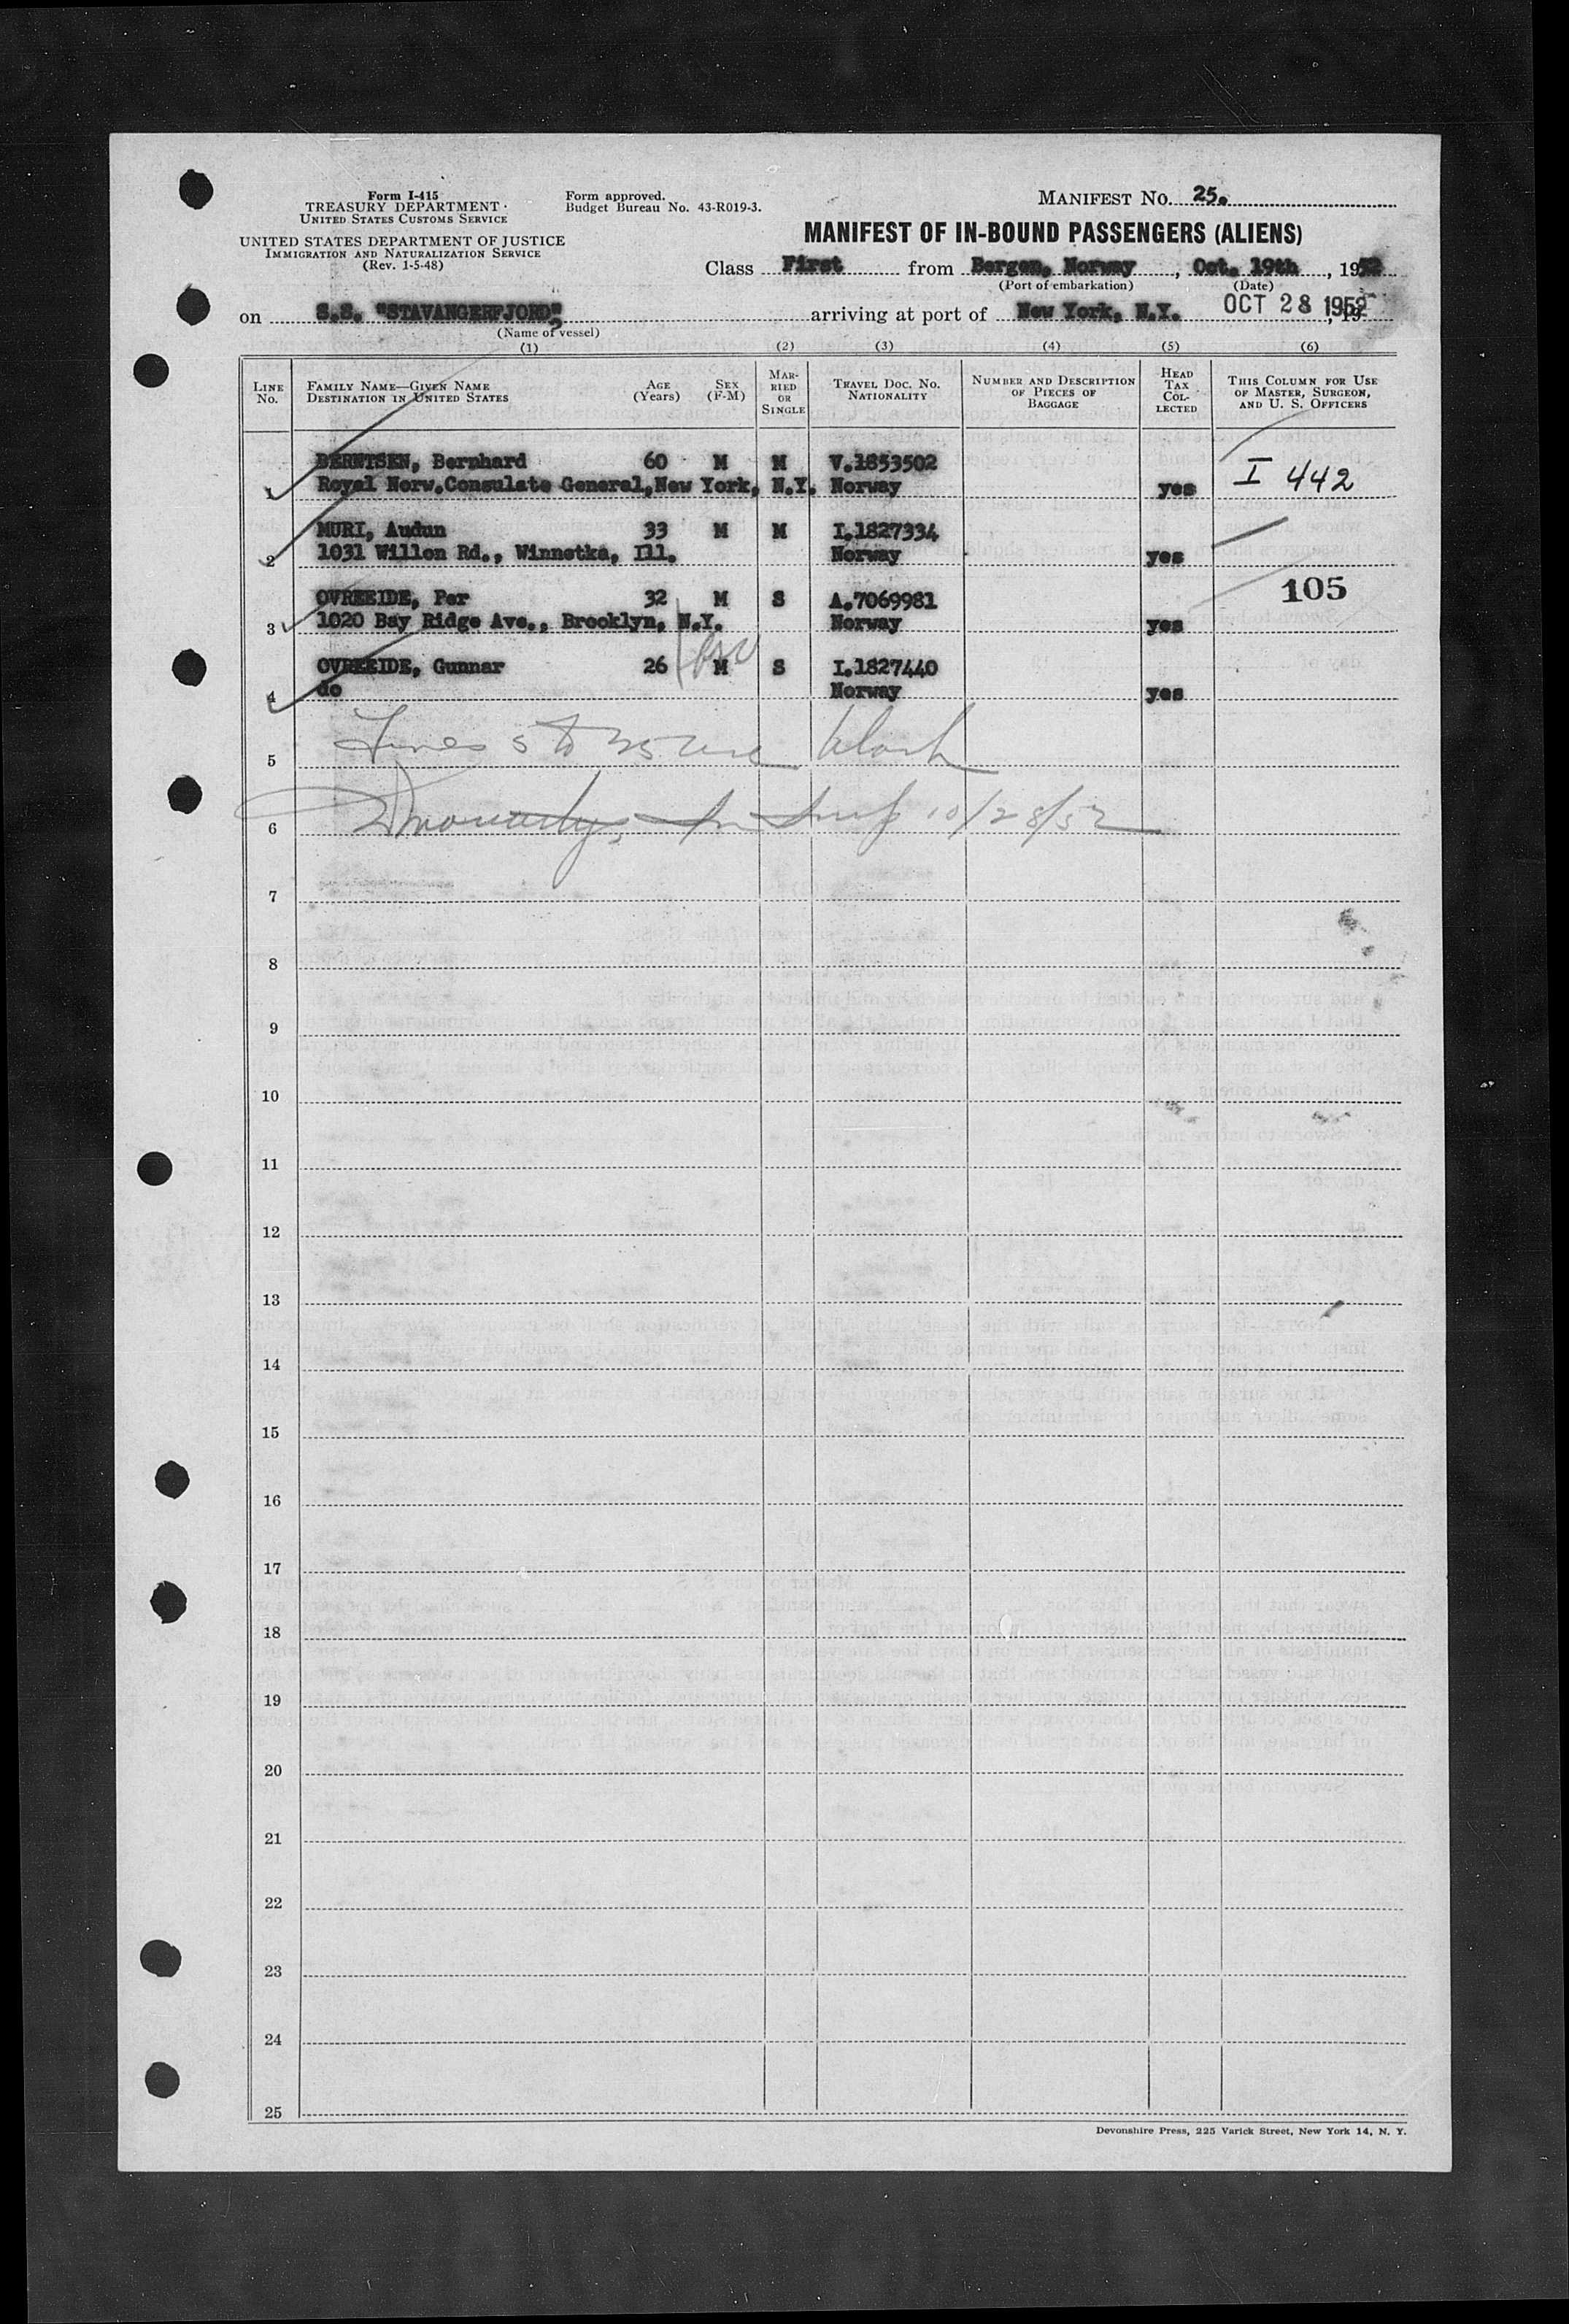 Form I-415
TREASURY DEPARTMENT
UNITED STATES CUSTOMS SERVICE
UNITED STATES DEPARTMENT OF JUSTICE
IMMIGRATION AND NATURALIZATION SERVICE
(Rev. 1-5-48)
Form approved.
Budget Bureau No. 43-R019-3.
MANIFEST NO. 25.
MANIFEST OF IN-BOUND PASSENGERS (ALIENS)
Class First from Bergen, Norway, Oct. 19th, 1952
(Port of embarkation) (Date)
on S.S. "STAVANGERFJORD" arriving at port of New York, N.Y. OCT 28 1952, 19
(Name of vessel)
(1) (2) (3) (4) (5) (6)
LINE No.
FAMILY NAME—GIVEN NAME
DESTINATION IN UNITED STATES
AGE (Years)
SEX (F-M)
MARRIED OR SINGLE
TRAVEL DOC. NO.
NATIONALITY
NUMBER AND DESCRIPTION OF PIECES OF BAGGAGE
HEAD TAX COLLECTED
THIS COLUMN FOR USE OF MASTER, SURGEON, AND U. S. OFFICERS
BERNTSEN, Bernhard 60 M M V.1853502
1 Royal Norw.Consulate General,New York, N.Y. Norway yes I 442
MURI, Audun 33 M M I.1827334
2 1031 Willon Rd., Winnetka, Ill. Norway yes
OVREEIDE, Per 32 M S A.7069981 105
3 1020 Bay Ridge Ave., Brooklyn, N.Y. Norway yes
OVREEIDE, Gunnar 26 M S I.1827440
4 do Norway yes
5 Lines 5 to 25 are blank
6 10/28/52
7
8
9
10
11
12
13
14
15
16
17
18
19
20
21
22
23
24
25
Devonshire Press, 225 Varick Street, New York 14, N. Y.